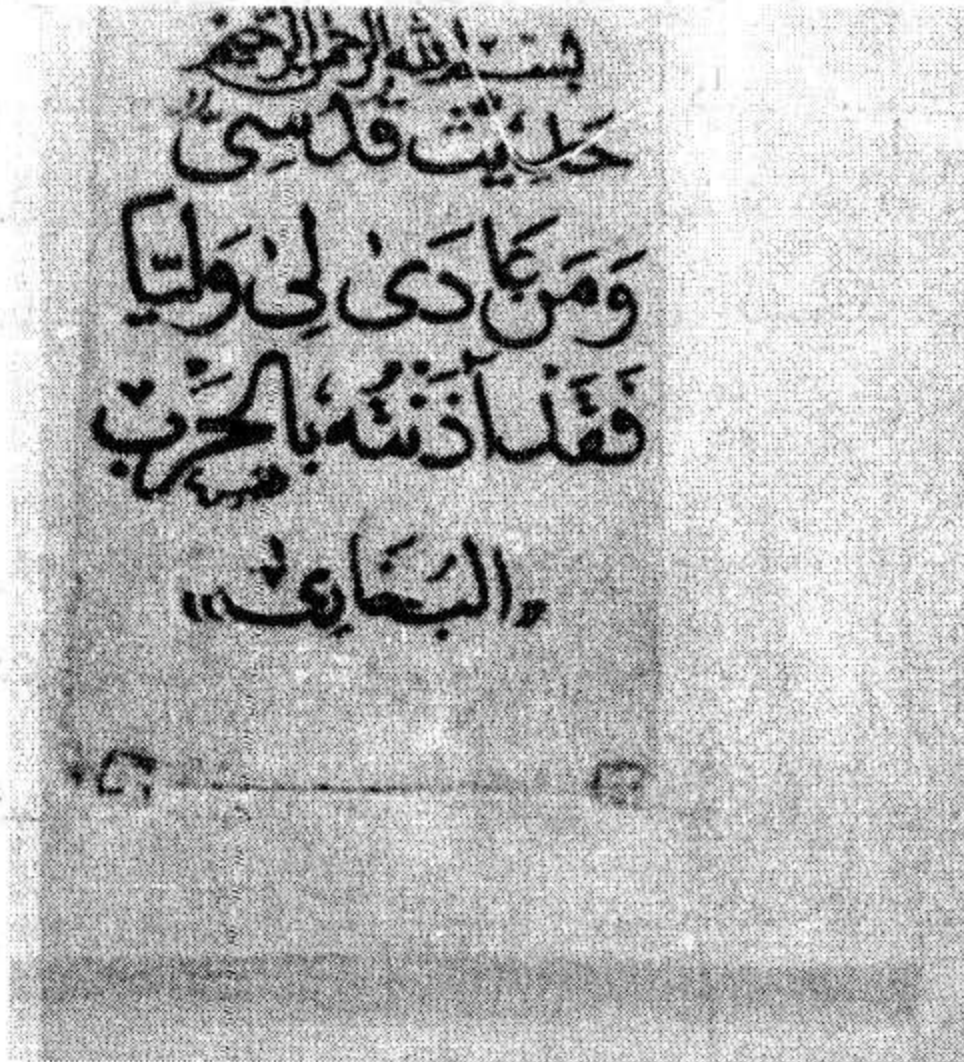 بسم الله الرحمن الرحيم
حَدِيث قُدسِي
وَمَن عَادَى لِى وَليًّا
فَقَدْ آذَنْتُه بِالحَرْبِ
«البُخَارِى»